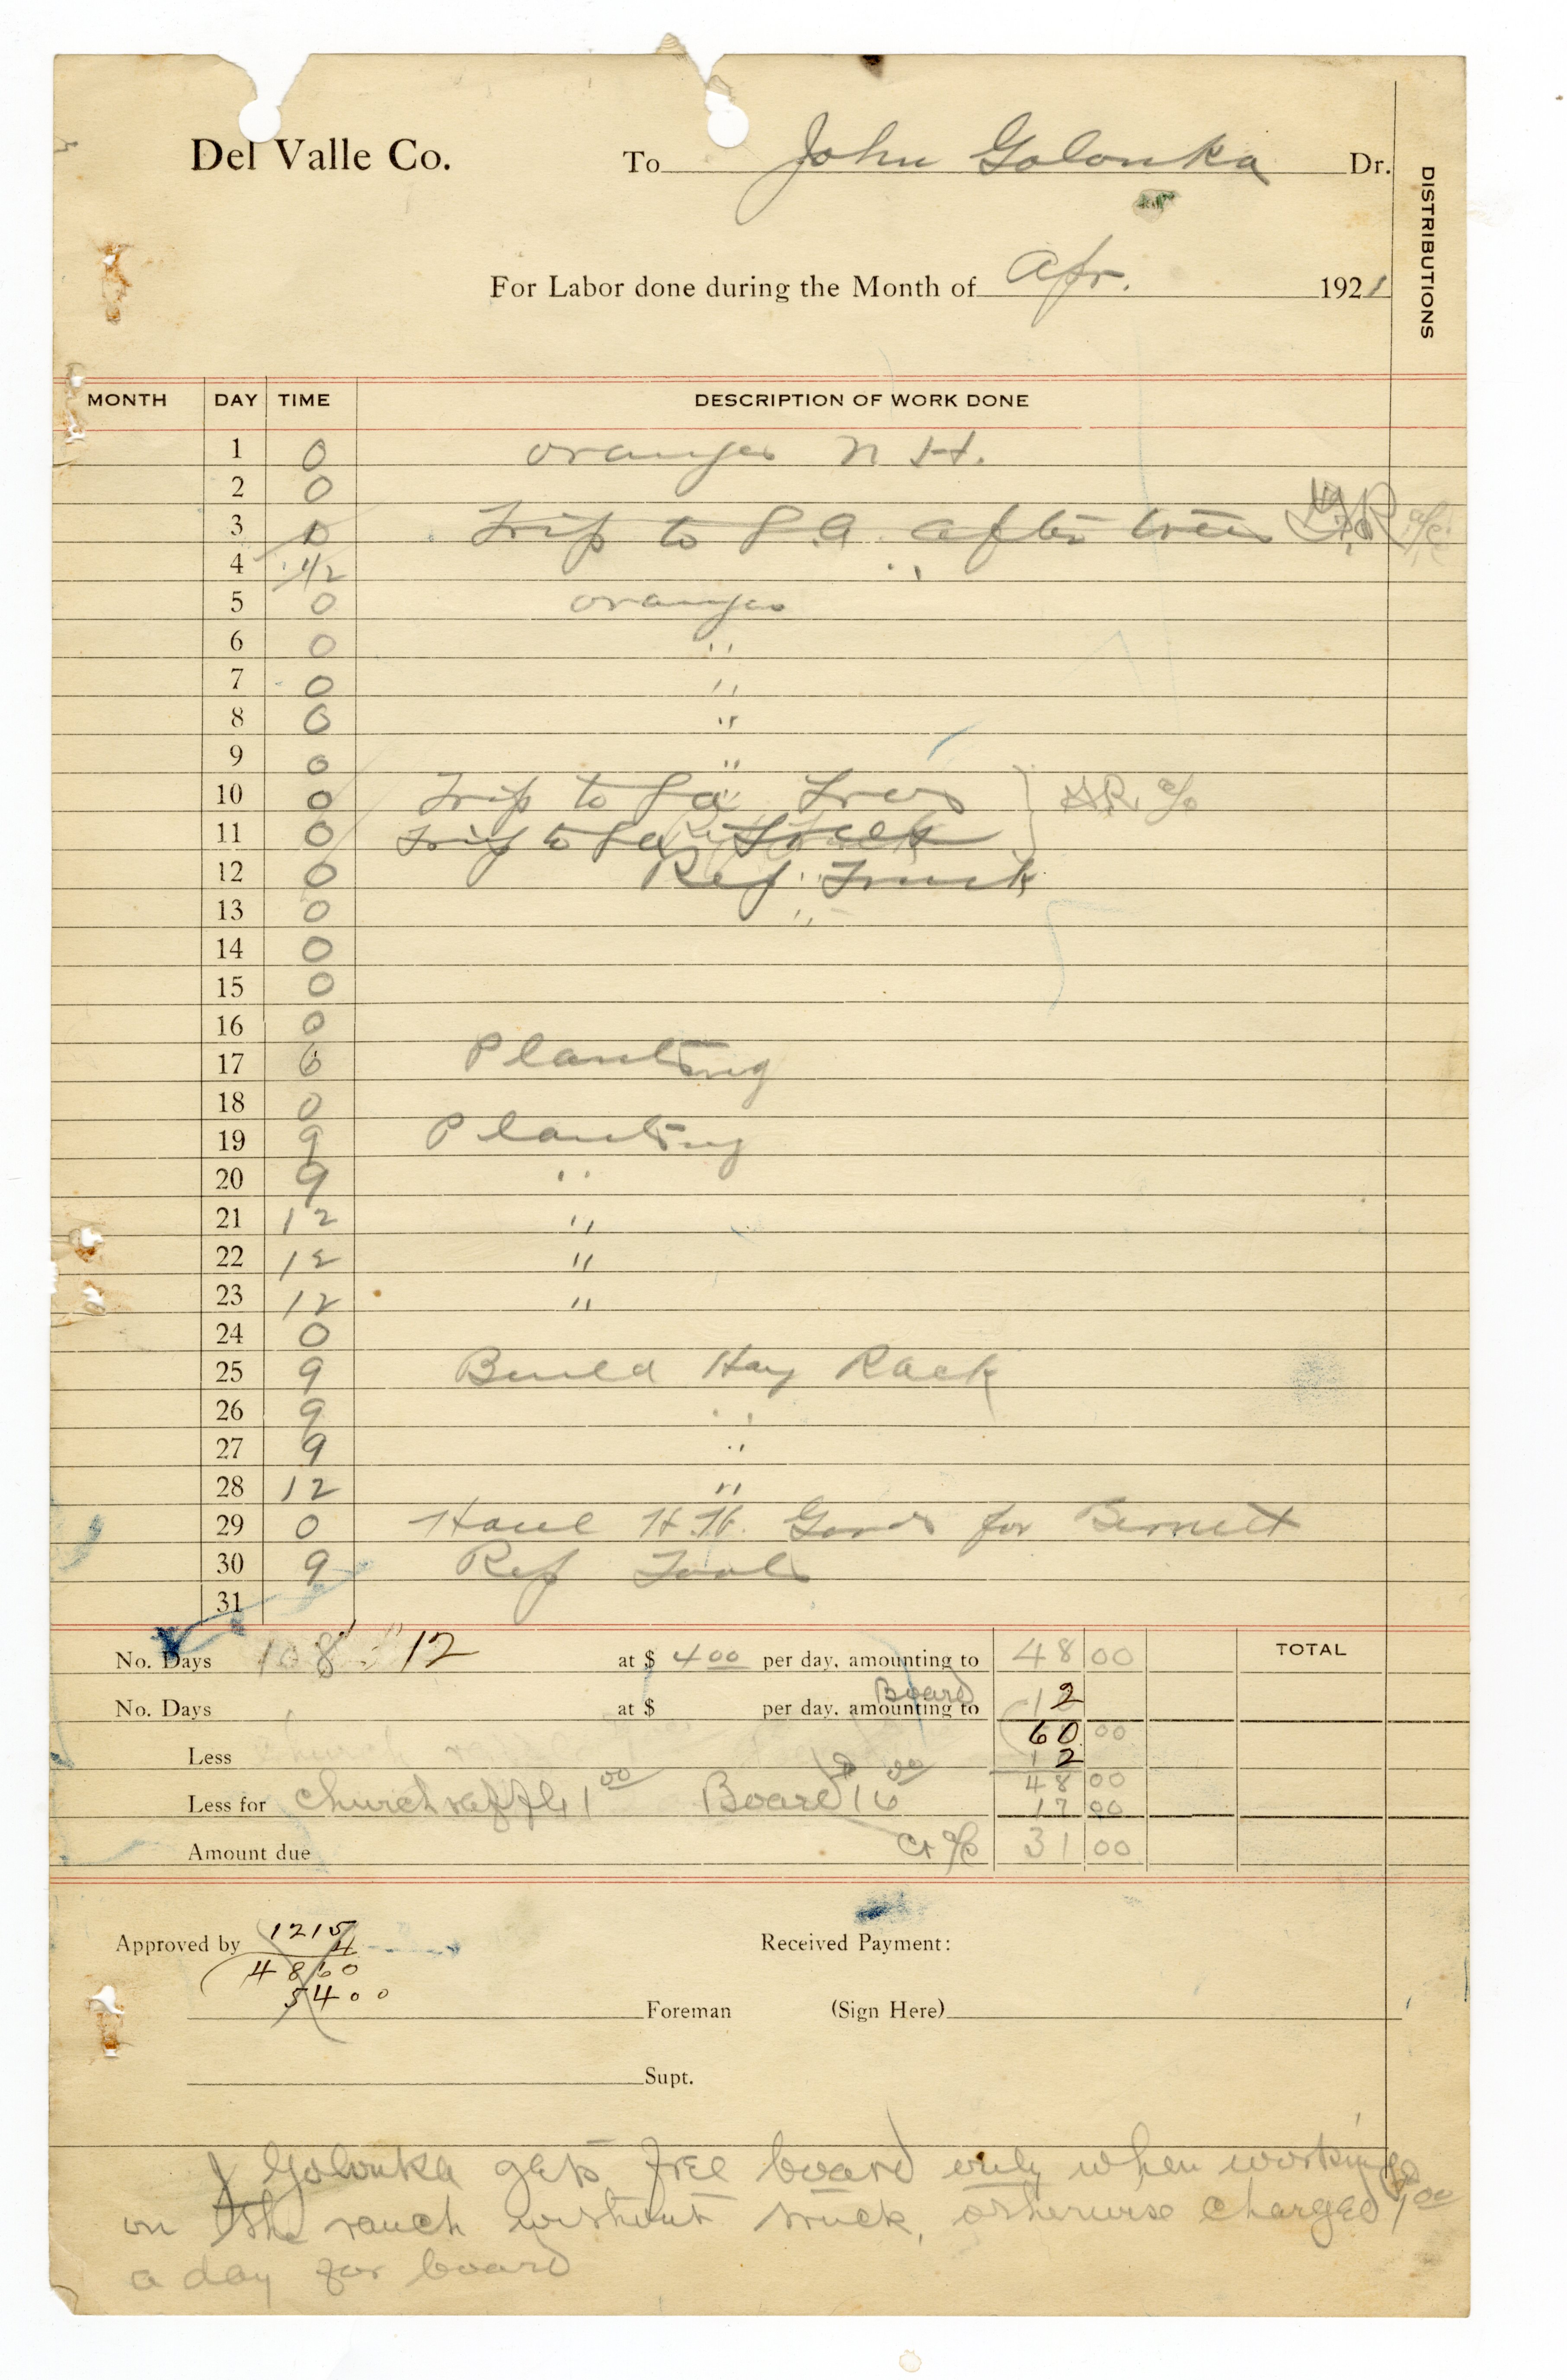 Del Valle Co. To John Golonka Dr.
DISTRIBUTIONS
For Labor done during the Month of Apr. 1921
MONTH DAY TIME DESCRIPTION OF WORK DONE
1 0 oranges N H.
2 0
3 0 Trip to L.A. after trees
4 1/2 ..
5 0 oranges
6 0 "
7 0 "
8 0 "
9 0 "
10 0 Trip to La Trees
11 0 Trip to La
12 0 Rep Truck
13 0 "
14 0
15 0
16 0
17 6 Planting
18 0
19 9 Planting
20 9 "
21 12 "
22 12 "
23 12 "
24 0
25 9 Build Hay Rack
26 9 "
27 9 "
28 12 "
29 0 Haul H.H. Goods for Bennett
30 9 Rep Tools
31
No. Days 108 12 at $ 4 00 per day, amounting to 48 00 TOTAL
No. Days at $ per day, amounting to Board 12
60 00
Less 12
48 00
Less for church raffle 1 00 Board 16 00 17 00
Amount due Cr a/c 31 00
1215
Approved by 4 Received Payment:
4860
5400
Foreman (Sign Here)
Supt.
J Golonka gets free board only when working
on the ranch without truck, otherwise charged 1 00
a day for board